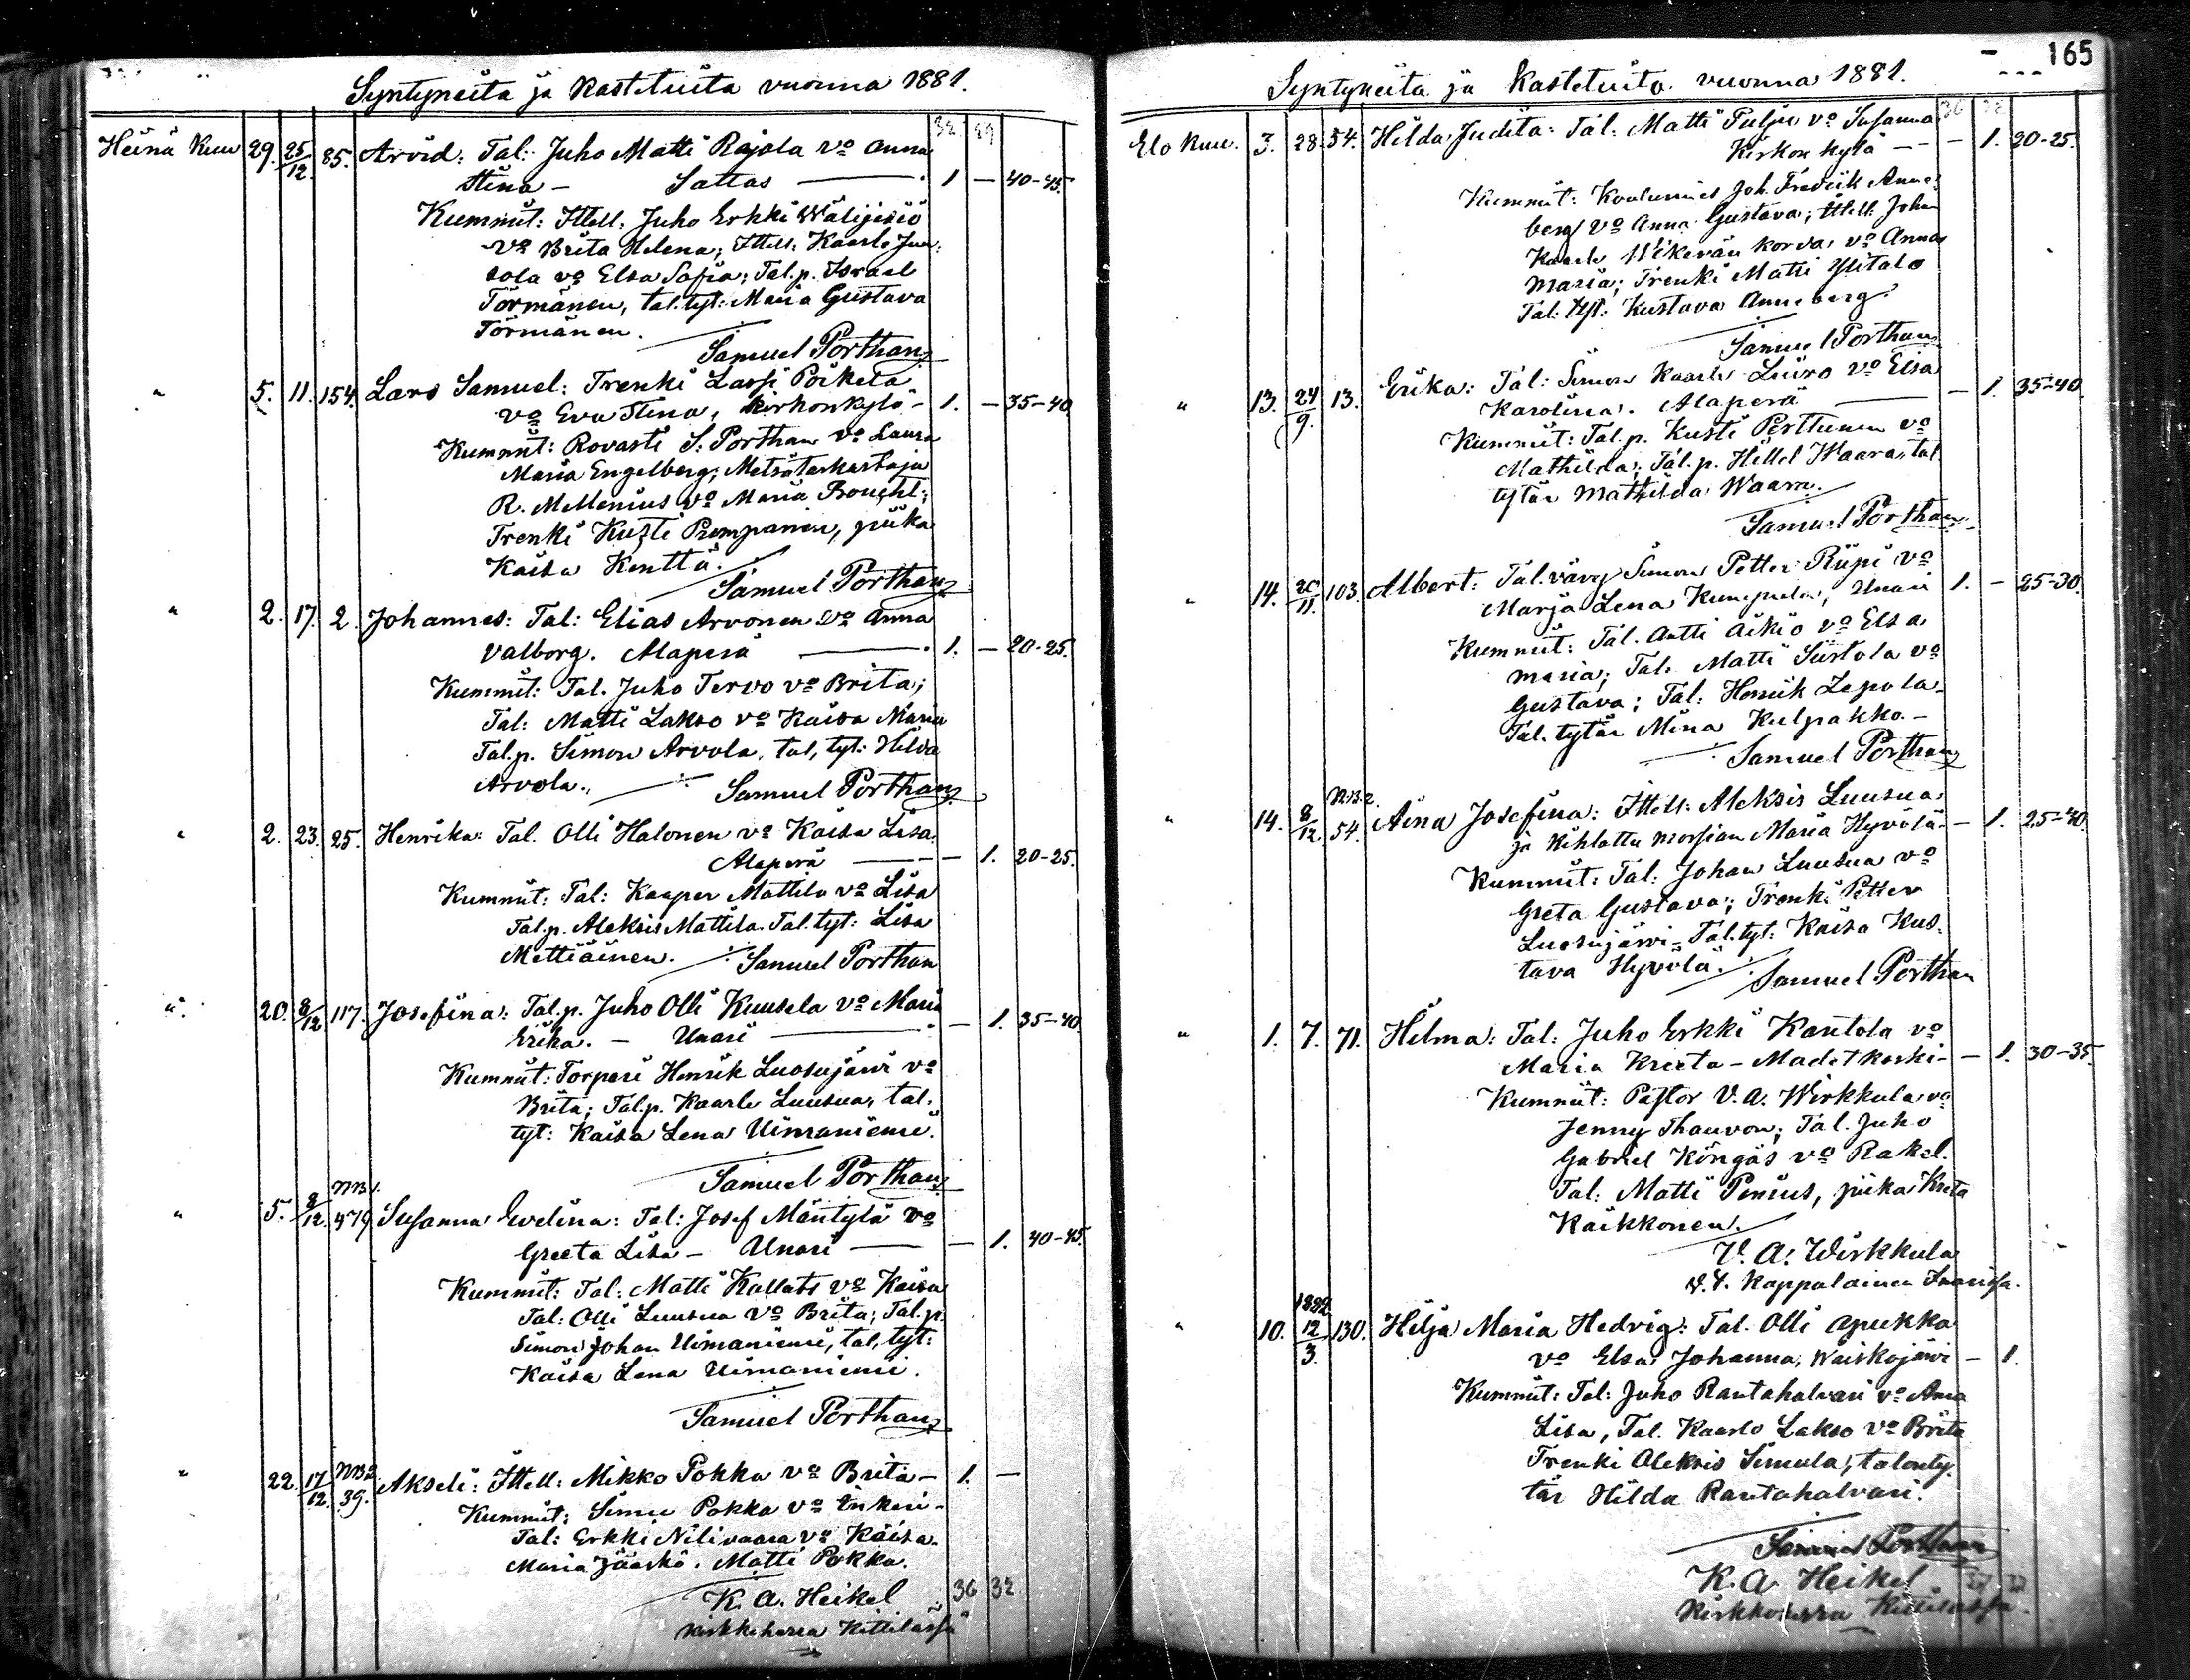 Syntyneitä ja Kastetuita vuonna 1881.
35 29
Heinä Kuu 29. 25/12. 85. Arvid: Tal: Juho Matti Rajala vo Anna
Stina - Sattas 1 - 40-45.
Kummit: Ittell. Juho Erkki Wälijesiö
vo Brita Helena; Ittell. Kaarle Jun-
tola vo Elsa Sofia; Tal.p. Israel
Törmänen, tal.tyt: Maria Gustava
Törmänen.
Samuel Porthan
" 5. 11. 154. Lars Samuel: Trenki Lassi Poikela
vo Eva Stina, Kirkonkylä - 1. - 35-40
Kummit: Rovasti S. Porthan vo Laura
Maria Engelberg; Metsätarkastaja
R. Mellenius vo Maria Boucht;
Trenki Kusti Pumpanen, piika
Kaisa Kenttä.
Samuel Porthan
" 2. 17. 2. Johannes: Tal: Elias Arvonen vo Anna
Valborg. Alaperä 1. - 20-25.
Kummit: Tal. Juho Tervo vo Brita;
Tal: Matti Lakso vo Kaisa Maria
Tal.p. Simon Arvola, tal, tyt: Hilda
Arvola. Samuel Porthan
" 2. 23. 25. Henrika: Tal. Olli Halonen vo Kaisa Lisa
Alaperä - 1. 20-25.
Kummit: Tal: Kasper Mattila vo Lisa
Tal.p. Aleksis Mattila. Tal.tyt: Lisa
Mettiäinen. Samuel Porthan
" 20. 8/12 117. Josefina: Tal.p. Juho Olli Kuusela vo Maria
Erika. - Unari - 1. 35-40
Kummit: Torpari Henrik Luosujärvi vo
Brita; Tal.p. Kaarle Luusua, tal.
tyt: Kaisa Lena Uimaniemi.
Samuel Porthan
NB 1.
" 5. 8/12. 479 Susanna Evelina: Tal: Josef Mäntylä vo
Greeta Lisa - Unari - 1. 40-45.
Kummit: Tal: Matti Kallats vo Kaisa
Tal: Olli Luusua vo Brita; Tal.p.
Simon Johan Uimaniemi, tal, tyt:
Kaisa Lena Uimaniemi.
Samuel Porthan
NB 2
" 22. 17/12. 39. Akseli: Ittell: Mikko Pokka vo Brita - 1. -
Kummit: Simu Pokka vo Inkeri -
Tal: Erkki Nilivaara vo Kaisa.
Maria Jääskö. Matti Pokka.
K. A. Heikel 36 32
kirkkoherra Kittilässä
165
Syntyneitä ja Kastetuita vuonna 1881.
36 32
Elo Kuu. 3. 28. 54. Hilda Judita: Tal: Matti Pulju vo Susanna
Kirkon kylä - - 1. 20-25.
Kummit: Koulumies Joh. Fredrik Anne-
berg vo Anna Gustava; Ittell: Johan
Kaarle Wikeränkorva vo Anna
Maria; Trenki Matti Ylitalo
Tal: tyt: Kustava Anneberg.
Samuel Porthan
" 13. 24/9. 13. Erika: Tal: Simon Kaarle Liiro vo Elsa
Karolina. Alaperä - 1. 35-40.
Kummit: Tal.p. Kusti Perttunen vo
Mathilda; Tal.p. Hillel Waara, tal
tytär Mathilda Waara.
Samuel Porthan
" 14. 26/11. 103. Albert: Tal.vävy Simon Petter Riipi vo
Marja Lena Kumpula, Unari 1. - 25-30.
Kummit: Tal. Antti Aikio vo Elsa
Maria; Tal. Matti Siistola vo
Gustava; Tal: Henrik Lepola
Tal. tytär Mina Kulpakko. -
Samuel Porthan
NB 2.
" 14. 8/12. 54. Aina Josefina: Ittell: Aleksis Luusua
ja kihlattu morsian Maria Hyvölä - 1. 25-40.
Kummit: Tal: Johan Luusua vo
Greta Gustava; Trenki Petter
Luosujärvi - Tal.tyt: Kaisa Kus-
tava Hyvölä. Samuel Porthan
" 1. 7. 71. Hilma: Tal: Juho Erkki Kantola vo
Maria Kreeta - Madetkoski - - 1. 30-35.
Kummit: Pastor V. A. Wirkkula vo
Jenny Thauvon; Tal. Juho
Gabriel Köngäs vo Rakel.
Tal: Matti Ponius, piika Kreta
Kaikkonen.
V. A. Wirkkula
v. t. Kappalainen Inarissa.
1882
" 10. 12/3. 130. Hilja Maria Hedvig: Tal. Olli Apukka
vo Elsa Johanna, Waiskojärvi - 1.
Kummit: Tal: Juho Rautahalvari vo Anna
Lisa, Tal. Kaarlo Lakso vo Brita
Trenki Aleksis Simula, talonty-
tär Hilda Rautahalvari.
Samuel Porthan
K. A. Heikel
Kirkkoherra Kittilässä.